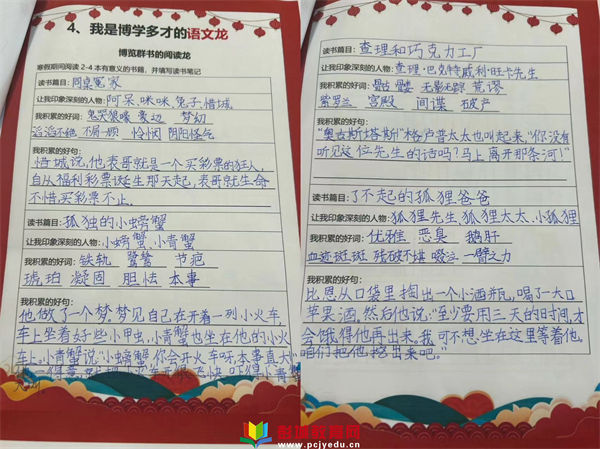 4、我是博学多才的语文龙
博览群书的阅读龙
寒假期间阅读2-4本有意义的书籍，并填写读书笔记
读书篇目：同桌冤家
让我印象深刻的人物：阿呆、咪咪、兔子、惜城
我积累的好词：鬼哭狼嚎 毫边 梦幻
滔滔不绝 不屑一顾 怜悯 阴阳怪气
我积累的好句：
惜城说，他表哥就是一个买彩票的狂人，
自从福利彩票诞生那天起，表哥就生命
不惜，买彩票不止。
读书篇目：孤独的小螃蟹
让我印象深刻的人物：小螃蟹、小青蟹
我积累的好词：铁轨 鹭鸶 节疤
琥珀 凝固 胆怯 本事
我积累的好句：
他做了一个梦，梦见自己在开着一列小火车，
车上坐着好些小甲虫，小青蟹也坐在他的小火
车上。小青蟹说："小螃蟹你会开火车呀，本事真大
读书篇目：查理和巧克力工厂
让我印象深刻的人物：查理·巴克特 威利·旺卡先生
我积累的好词：骷髅 无影无踪 荒谬
紫罗兰 宫殿 间谍 破产
我积累的好句：
"奥古斯塔斯"格卢普太太也叫起来，"你没有
听见这位先生的话吗？马上离开那条河！"
读书篇目：了不起的狐狸爸爸
让我印象深刻的人物：狐狸先生、狐狸太太、小狐狸
我积累的好词：优雅 恶臭 鹅肝
血迹斑斑 残破不堪 啜泣 一臂之力
我积累的好句：
比恩从口袋里掏出一个小酒瓶，喝了一大口
苹果酒。然后他说："至少要用三天的时间，才
会饿得他再出来。我可不想坐在这里等着他，
咱们把他挖出来吧。"
彭博教育网
www.pcjyedu.cn